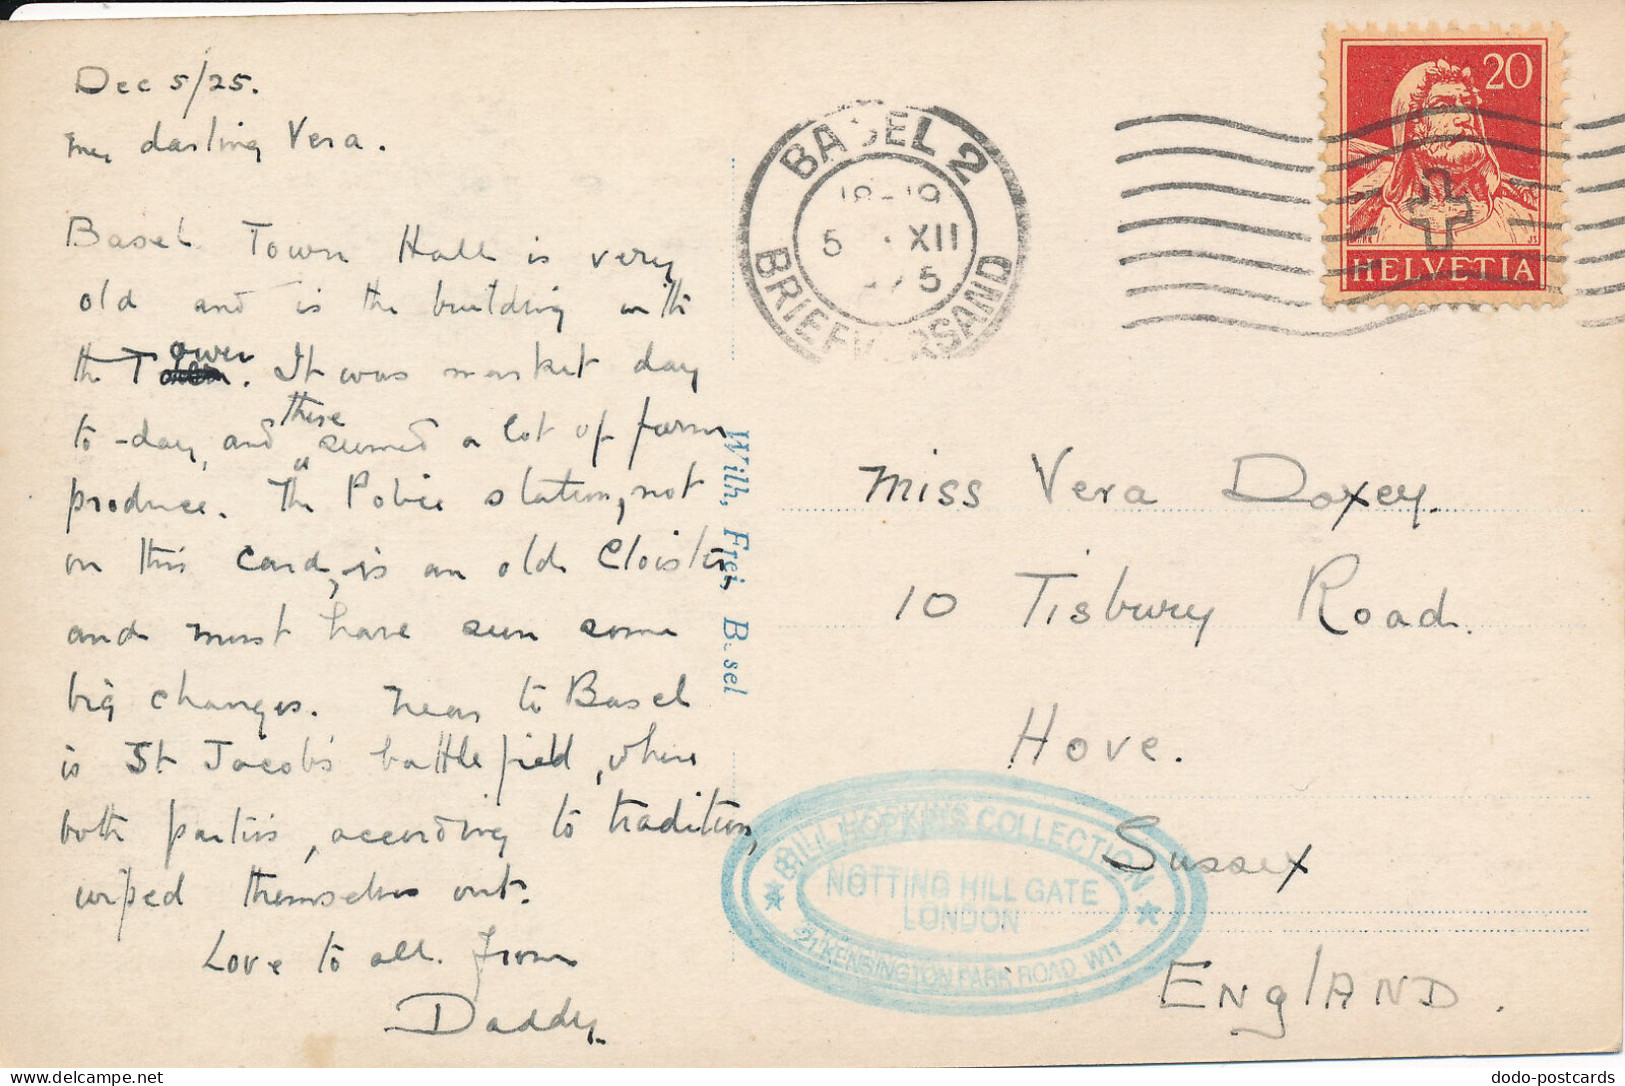 Dec 5/25.
my darling Vera.
Basel Town Hall is very
old and is the building with
the Tower. It was market day
to-day, and there seemed a lot of farm
produce. The Police station, not
on this card, is an old Cloister,
and must have seen some
big changes. Near to Basel
is St Jacob's battlefield, where
both parties, according to tradition,
wiped themselves out.
Love to all. from
Daddy.
Wilh, Frei, B.sel
BASEL 2
18-19
5 . XII
25
BRIEFVERSAND
20
HELVETIA
Miss Vera Doxey.
10 Tisbury Road.
Hove.
Sussex
ENglAND.
BILL HOPKINS COLLECTION
NOTTING HILL GATE
LONDON
21 KENSINGTON PARK ROAD. W11
dodo-postcards